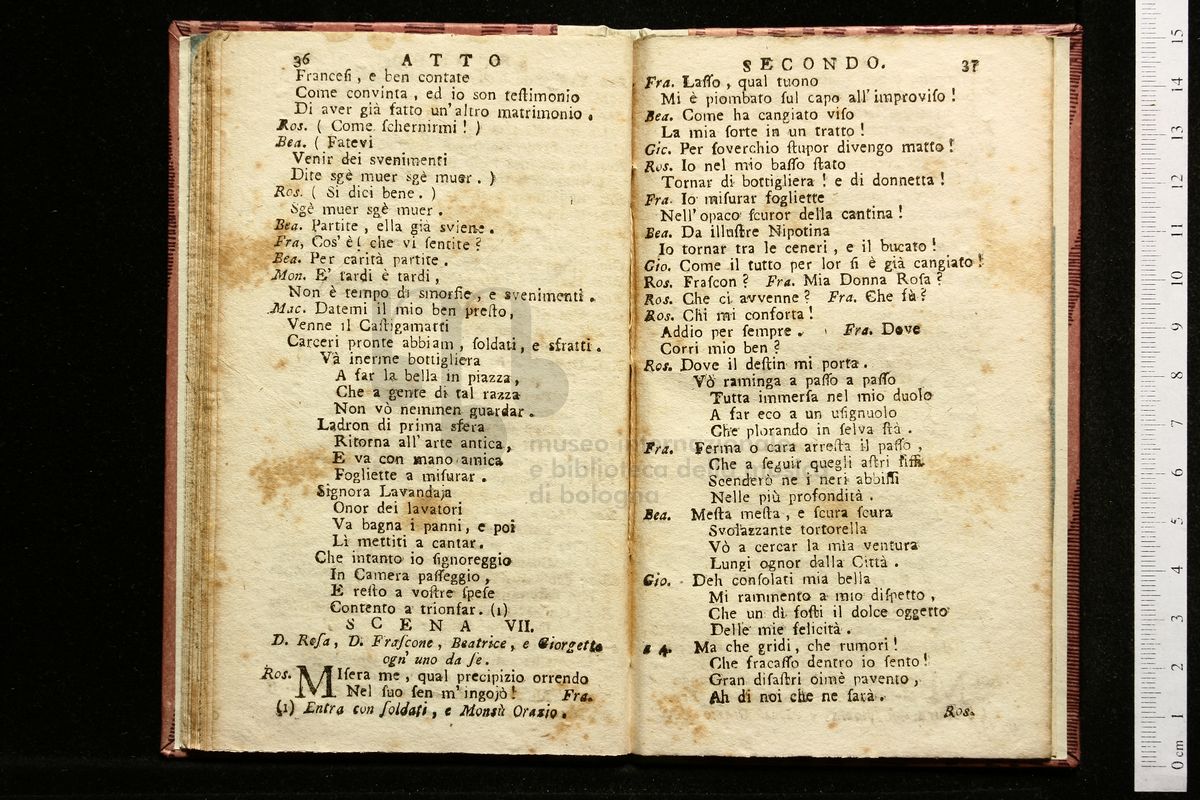 36 ATTO
Francesi, e ben contate
Come convinta, ed io son testimonio
Di aver già fatto un'altro matrimonio.
Ros. ( Come schernirmi! )
Bea. ( Fatevi
Venir dei svenimenti
Dite sgè muer sgè muer. )
Ros. ( Si dici bene. )
Sgè muer sgè muer.
Bea. Partite, ella già sviene.
Fra, Cos'è! che vi sentite?
Bea. Per carità partite.
Mon. E' tardi è tardi,
Non è tempo di smorfie, e svenimenti.
Mac. Datemi il mio ben presto,
Venne il Castigamatti
Carceri pronte abbiam, soldati, e sfratti.
Và inerme bottigliera
A far la bella in piazza,
Che a gente di tal razza
Non vò nemmen guardar.
Ladron di prima sfera
Ritorna all'arte antica,
E va con mano amica
Fogliette a misurar.
Signora Lavandaja
Onor dei lavatori
Va bagna i panni, e poi
Lì mettiti a cantar.
Che intanto io signoreggio
In Camera passeggio,
E resto a vostre spese
Contento a trionfar. (1)
SCENA VII.
D. Rosa, D. Frascone, Beatrice, e Giorgetto
ogn'uno da se.
Ros. MIsera me, qual precipizio orrendo
Nel suo sen m'ingojò! Fra.
(1) Entra con soldati, e Monsù Orazio.
SECONDO. 37
Fra. Lasso, qual tuono
Mi è piombato sul capo all'improviso!
Bea. Come ha cangiato viso
La mia sorte in un tratto!
Gio. Per soverchio stupor divengo matto!
Ros. Io nel mio basso stato
Tornar di bottigliera! e di donnetta!
Fra. Io misurar fogliette
Nell'opaco scuror della cantina!
Bea. Da illustre Nipotina
Io tornar tra le ceneri, e il bucato!
Gio. Come il tutto per lor si è già cangiato!
Ros. Frascon? Fra. Mia Donna Rosa?
Ros. Che ci avvenne? Fra. Che fà?
Ros. Chi mi conforta!
Addio per sempre. Fra. Dove
Corri mio ben?
Ros. Dove il destin mi porta.
Vò raminga a passo a passo
Tutta immersa nel mio duolo
A far eco a un usignuolo
Che plorando in selva stà.
Fra. Ferma o cara arresta il passo,
Che a seguir quegli astri fissi
Scenderò ne i neri abbissi
Nelle più profondità.
Bea. Mesta mesta, e scura scura
Svolazzante tortorella
Vò a cercar la mia ventura
Lungi ognor dalla Città.
Gio. Deh consolati mia bella
Mi rammento a mio dispetto,
Che un dì fosti il dolce oggetto
Delle mie felicità.
a 4. Ma che gridi, che rumori!
Che fracasso dentro io sento!
Gran disastri oimè pavento,
Ah di noi che ne sarà.
Ros.
museo internazionale
e biblioteca della musica
di bologna
0 cm 1 2 3 4 5 6 7 8 9 10 11 12 13 14 15